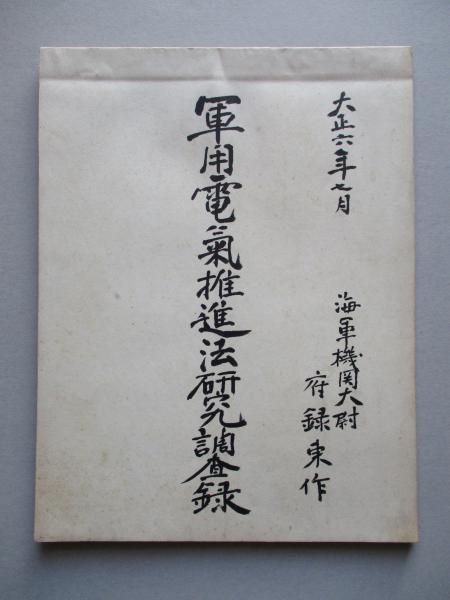 大正六年七月
海軍機関大尉
府録東作
軍用電氣推進法研究調査録